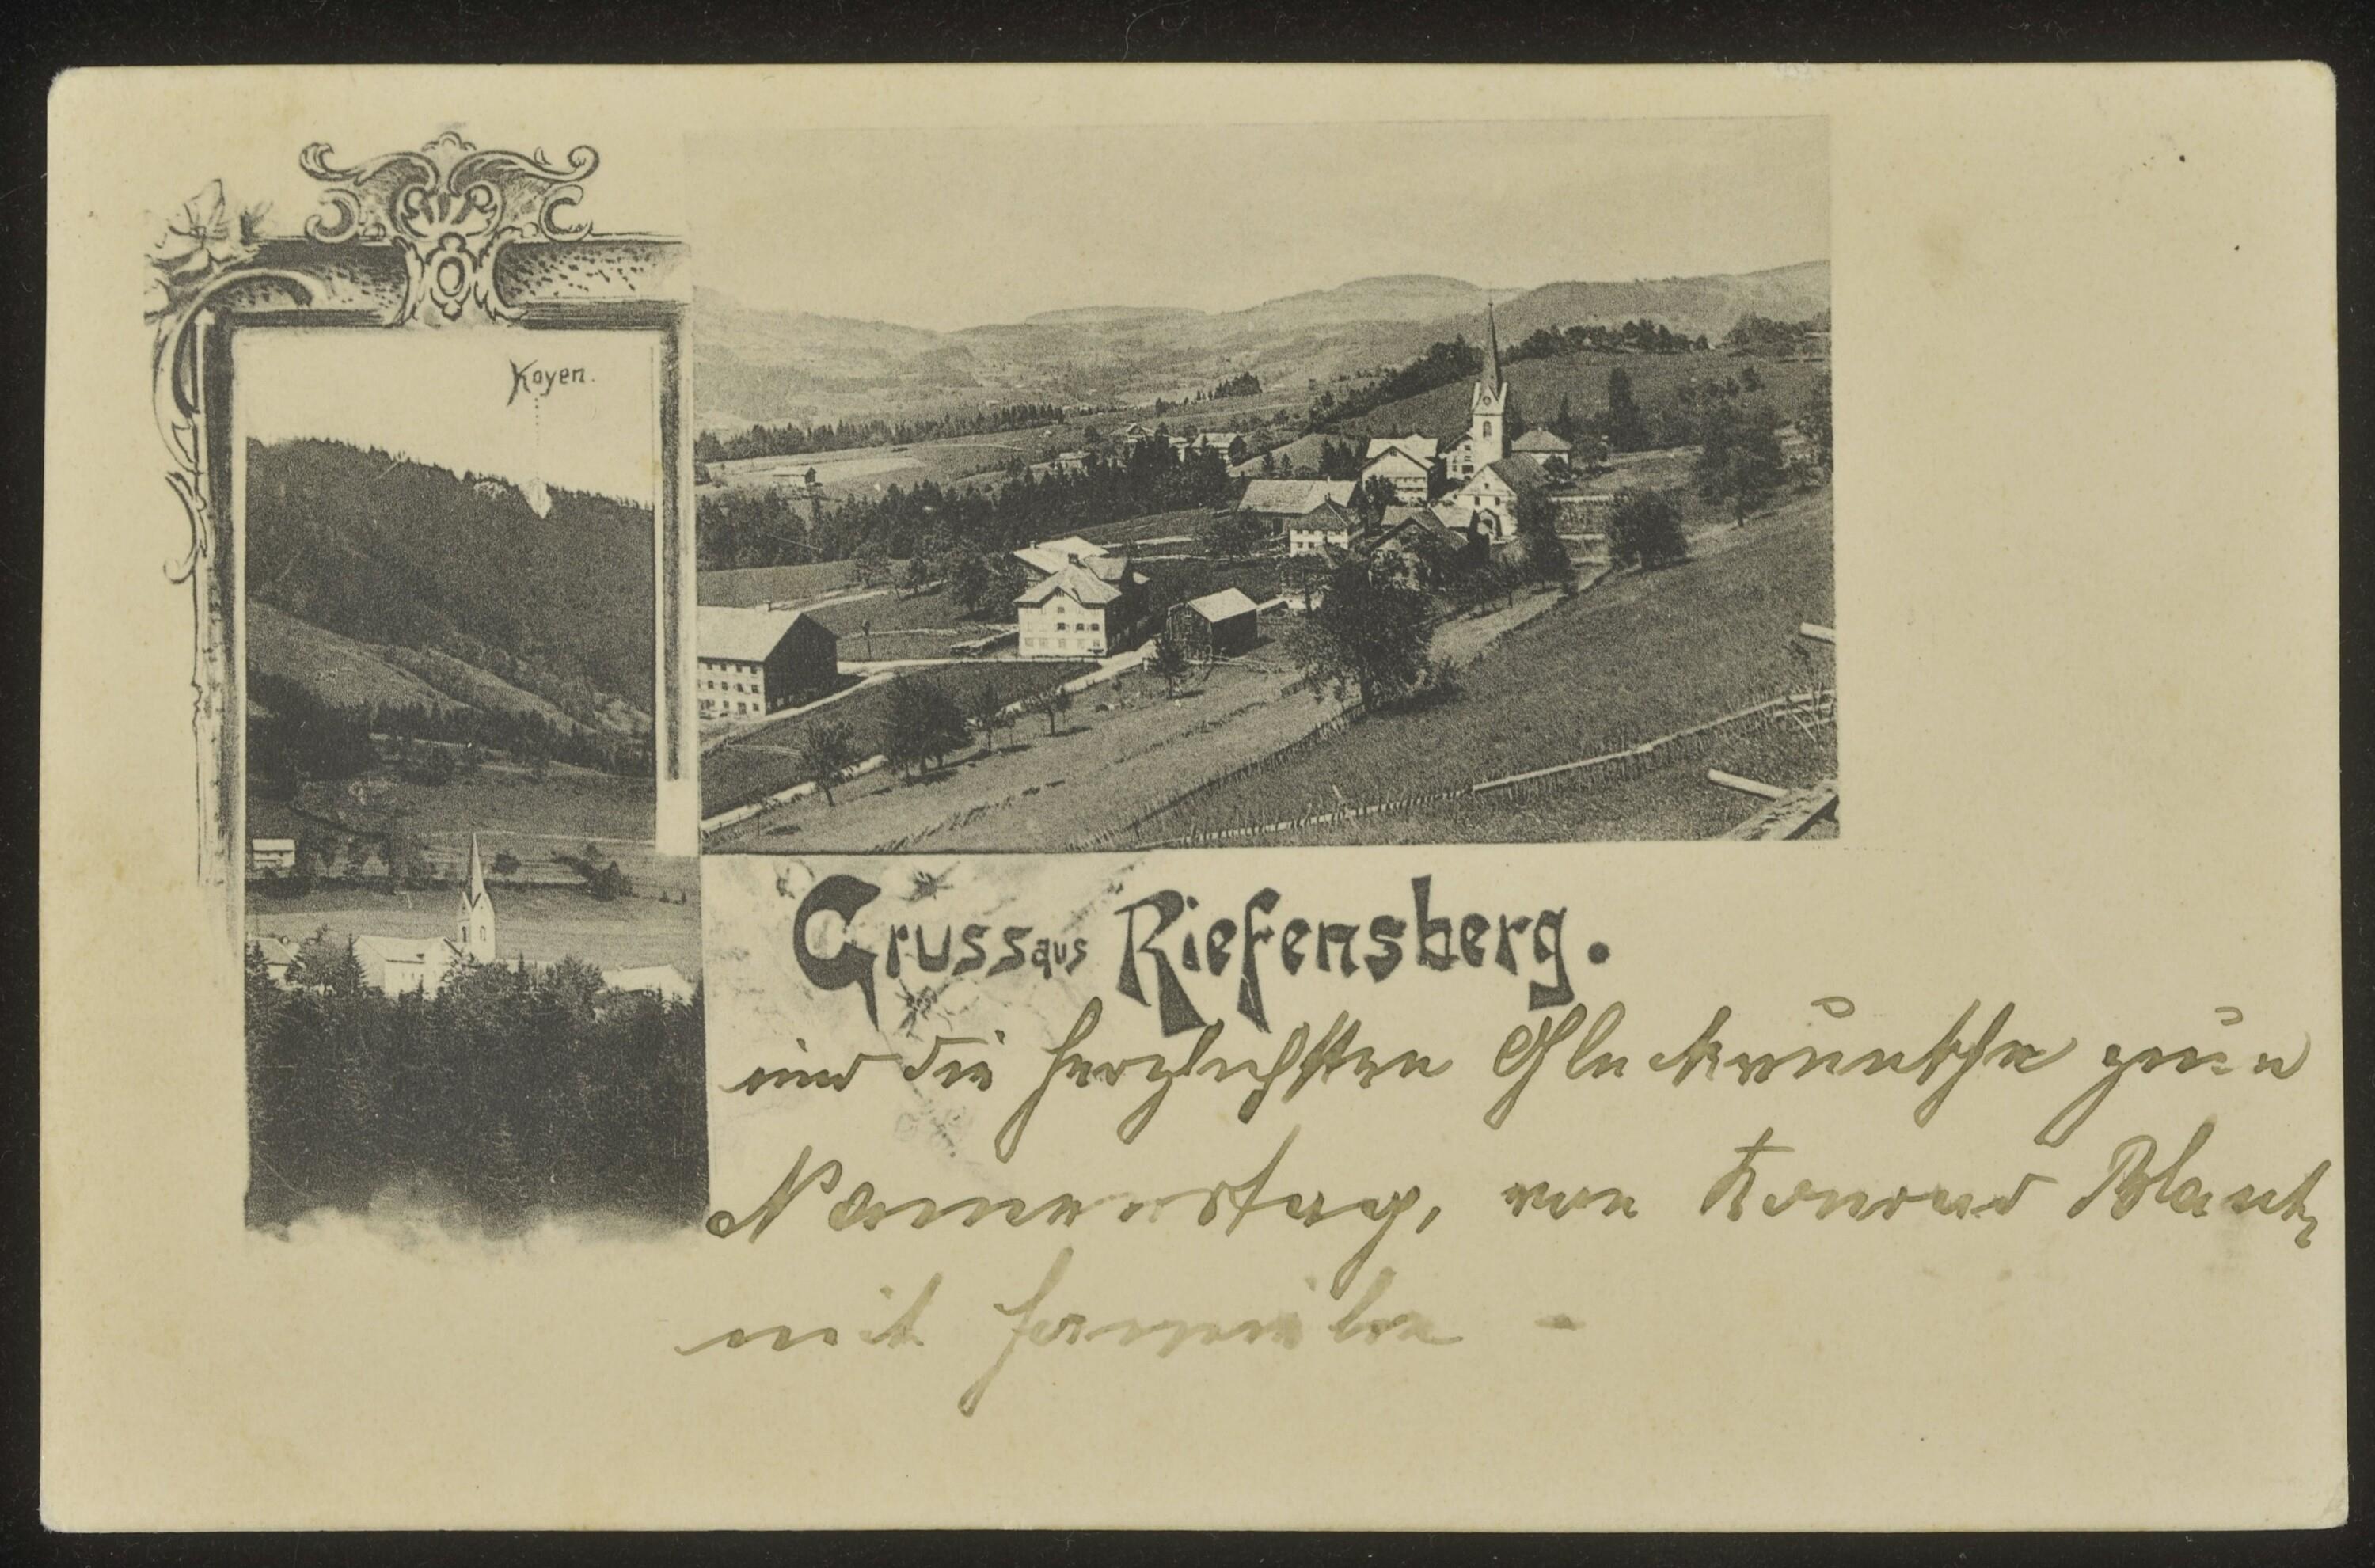 Koyen.
Gruss aus Riefensberg.
und die herzlichsten Gluckwünsche zum
Namenstag, von Konrad
mit Familie -